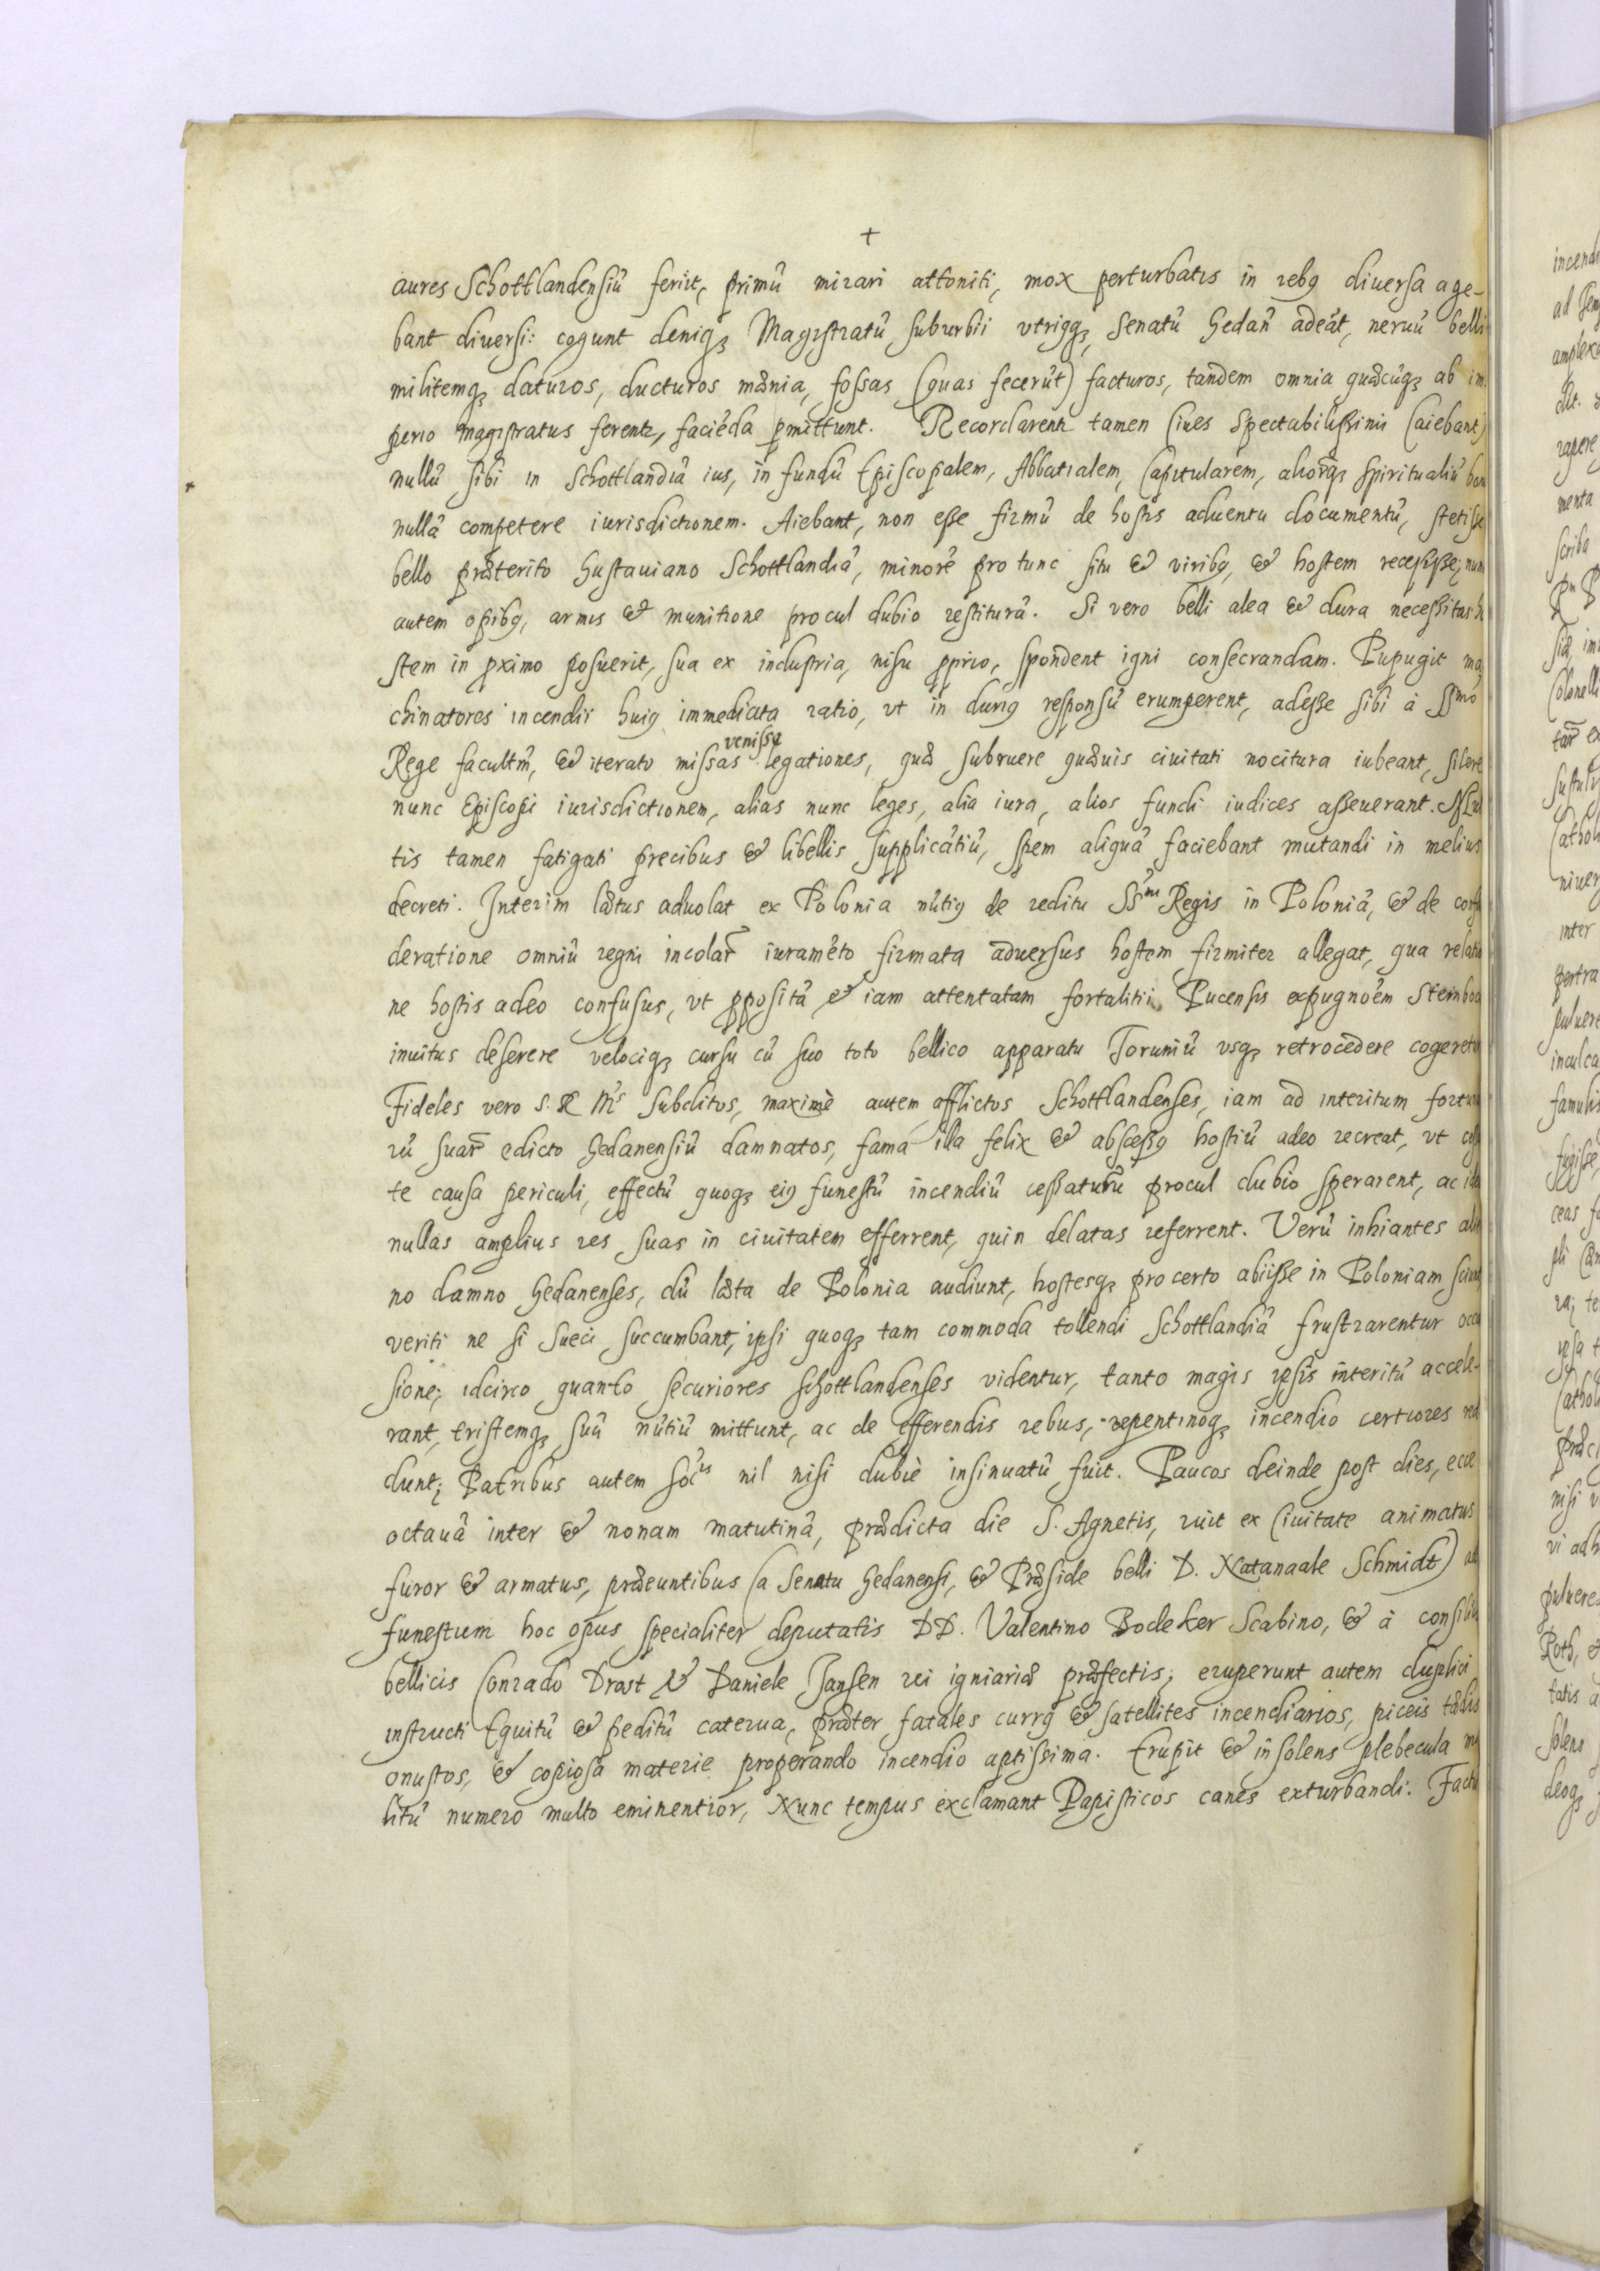 +
aures Schottlandensiũ ferit, primũ mirari attoniti, mox perturbatis in rebꝰ diuersa age-
bant diuersi: cogunt deniqꝫ Magistratũ suburbii vtriqꝫ, Senatũ Gedañ adeãt, neruũ belli
militemqꝫ daturos, ducturos mænia, fossas (quas fecerũt) facturos, tandem omnia quæcũqꝫ ab im
perio magistratus ferentr, faciẽda pmittunt. Recordarentr tamen Ciues Spectabilissimi (aiebant)
nullũ sibi in Schottlandiã ius, in fundũ Episcopalem, Abbatialem, Capitularem, aliorqꝫ spiritualiũ
nullã competere iurisdictionem. Aiebant, non esse firmũ de hostis aduentu documentũ, stetisse
bello præterito Gustauiano Schottlandiã, minorẽ pro tunc situ & viribꝰ, & hostem recessisse; nunc
autem opibꝰ, armis & munitione procul dubio restiturã. Si vero belli alea & dura necessitas ho
stem in pximo posuerit, sua ex industria, nisu pprio, spondent igni consecrandam. Pupugit ma
chinatores incendii huiꝰ immediata ratio, vt in duriꝰ responsũ erumperent, adesse sibi à SSmo
Rege facultm̃, & iterato missas venisse legationes, quæ subruere quæuis ciuitati nocitura iubeant, silere
nunc Episcopi iurisdictionem, alias nunc leges, alia iura, alios fundi iudices asseuerant.
tis tamen fatigati precibus & libellis supplicãtiũ, spem aliquã faciebant mutandi in melius
decreti. Interim lætus aduolat ex Polonia nũtiꝰ de reditu SSmi Regis in Poloniã, & de confæ
deratione omniũ regni incolar̃ iuramẽto firmata aduersus hostem firmiter allegat, qua relatio
ne hostis adeo confusus, vt ppositã & iam attentatam fortalitii Pucensis expugnoẽm Steinbock
inuitus deserere velociqꝫ cursu cũ suo toto bellico apparatu Toruniũ vsqꝫ retrocedere cogeretur
Fideles vero S. R. Mis subditos, maximè autem afflictos Schottlandenses, iam ad interitum fortuna
rũ suar̃ edicto Gedanensiũ damnatos, fama illa felix & abscessꝰ hostiũ adeo recreat, vt cessan
te causa periculi, effectũ quoqꝫ eiꝰ funestũ incendiũ cessaturũ procul dubio sperarent, ac ita
nullas amplius res suas in ciuitatem efferrent, quin delatas referrent. Verũ inhiantes alie
no damno Gedanenses, dũ læta de Polonia audiunt, hostesqꝫ pro certo abiisse in Poloniam sciunt
veriti ne si Sueci succumbant, ipsi quoqꝫ tam commoda tollendi Schottlandiã frustrarentur occa
sione; idcirco quanto securiores Schottlandenses videntur, tanto magis ipsis interitũ accele-
rant, tristemqꝫ suũ nũtiũ mittunt, ac de efferendis rebus, repentinoqꝫ incendio certiores red
dunt; Patribus autem Socis nil nisi dubiè insinuatũ fuit. Paucos deinde post dies, ecce
octauã inter & nonam matutinã, prædicta die S. Agnetis, ruit ex Ciuitate animatus
furor & armatus, præeuntibus (a Senatu Gedanensi, & Præside belli D. Natanaele Schmidt) ad
funestum hoc opus specialiter deputatis DD. Valentino Bodeker Scabino, & à consiliis
bellicis Conrado Drost & Daniele Jansen rei igniariæ præfectis; eruperunt autem duplici
instructi Equitũ & peditũ caterua, præter fatales currꝰ & satellites incendiarios, piceis tædis
onustos, & copiosa materie properando incendio aptissima. Erupit & insolens plebecula mi
litũ numero multo eminentior, Nunc tempus exclamant Papisticos canes exturbandi. Factũ